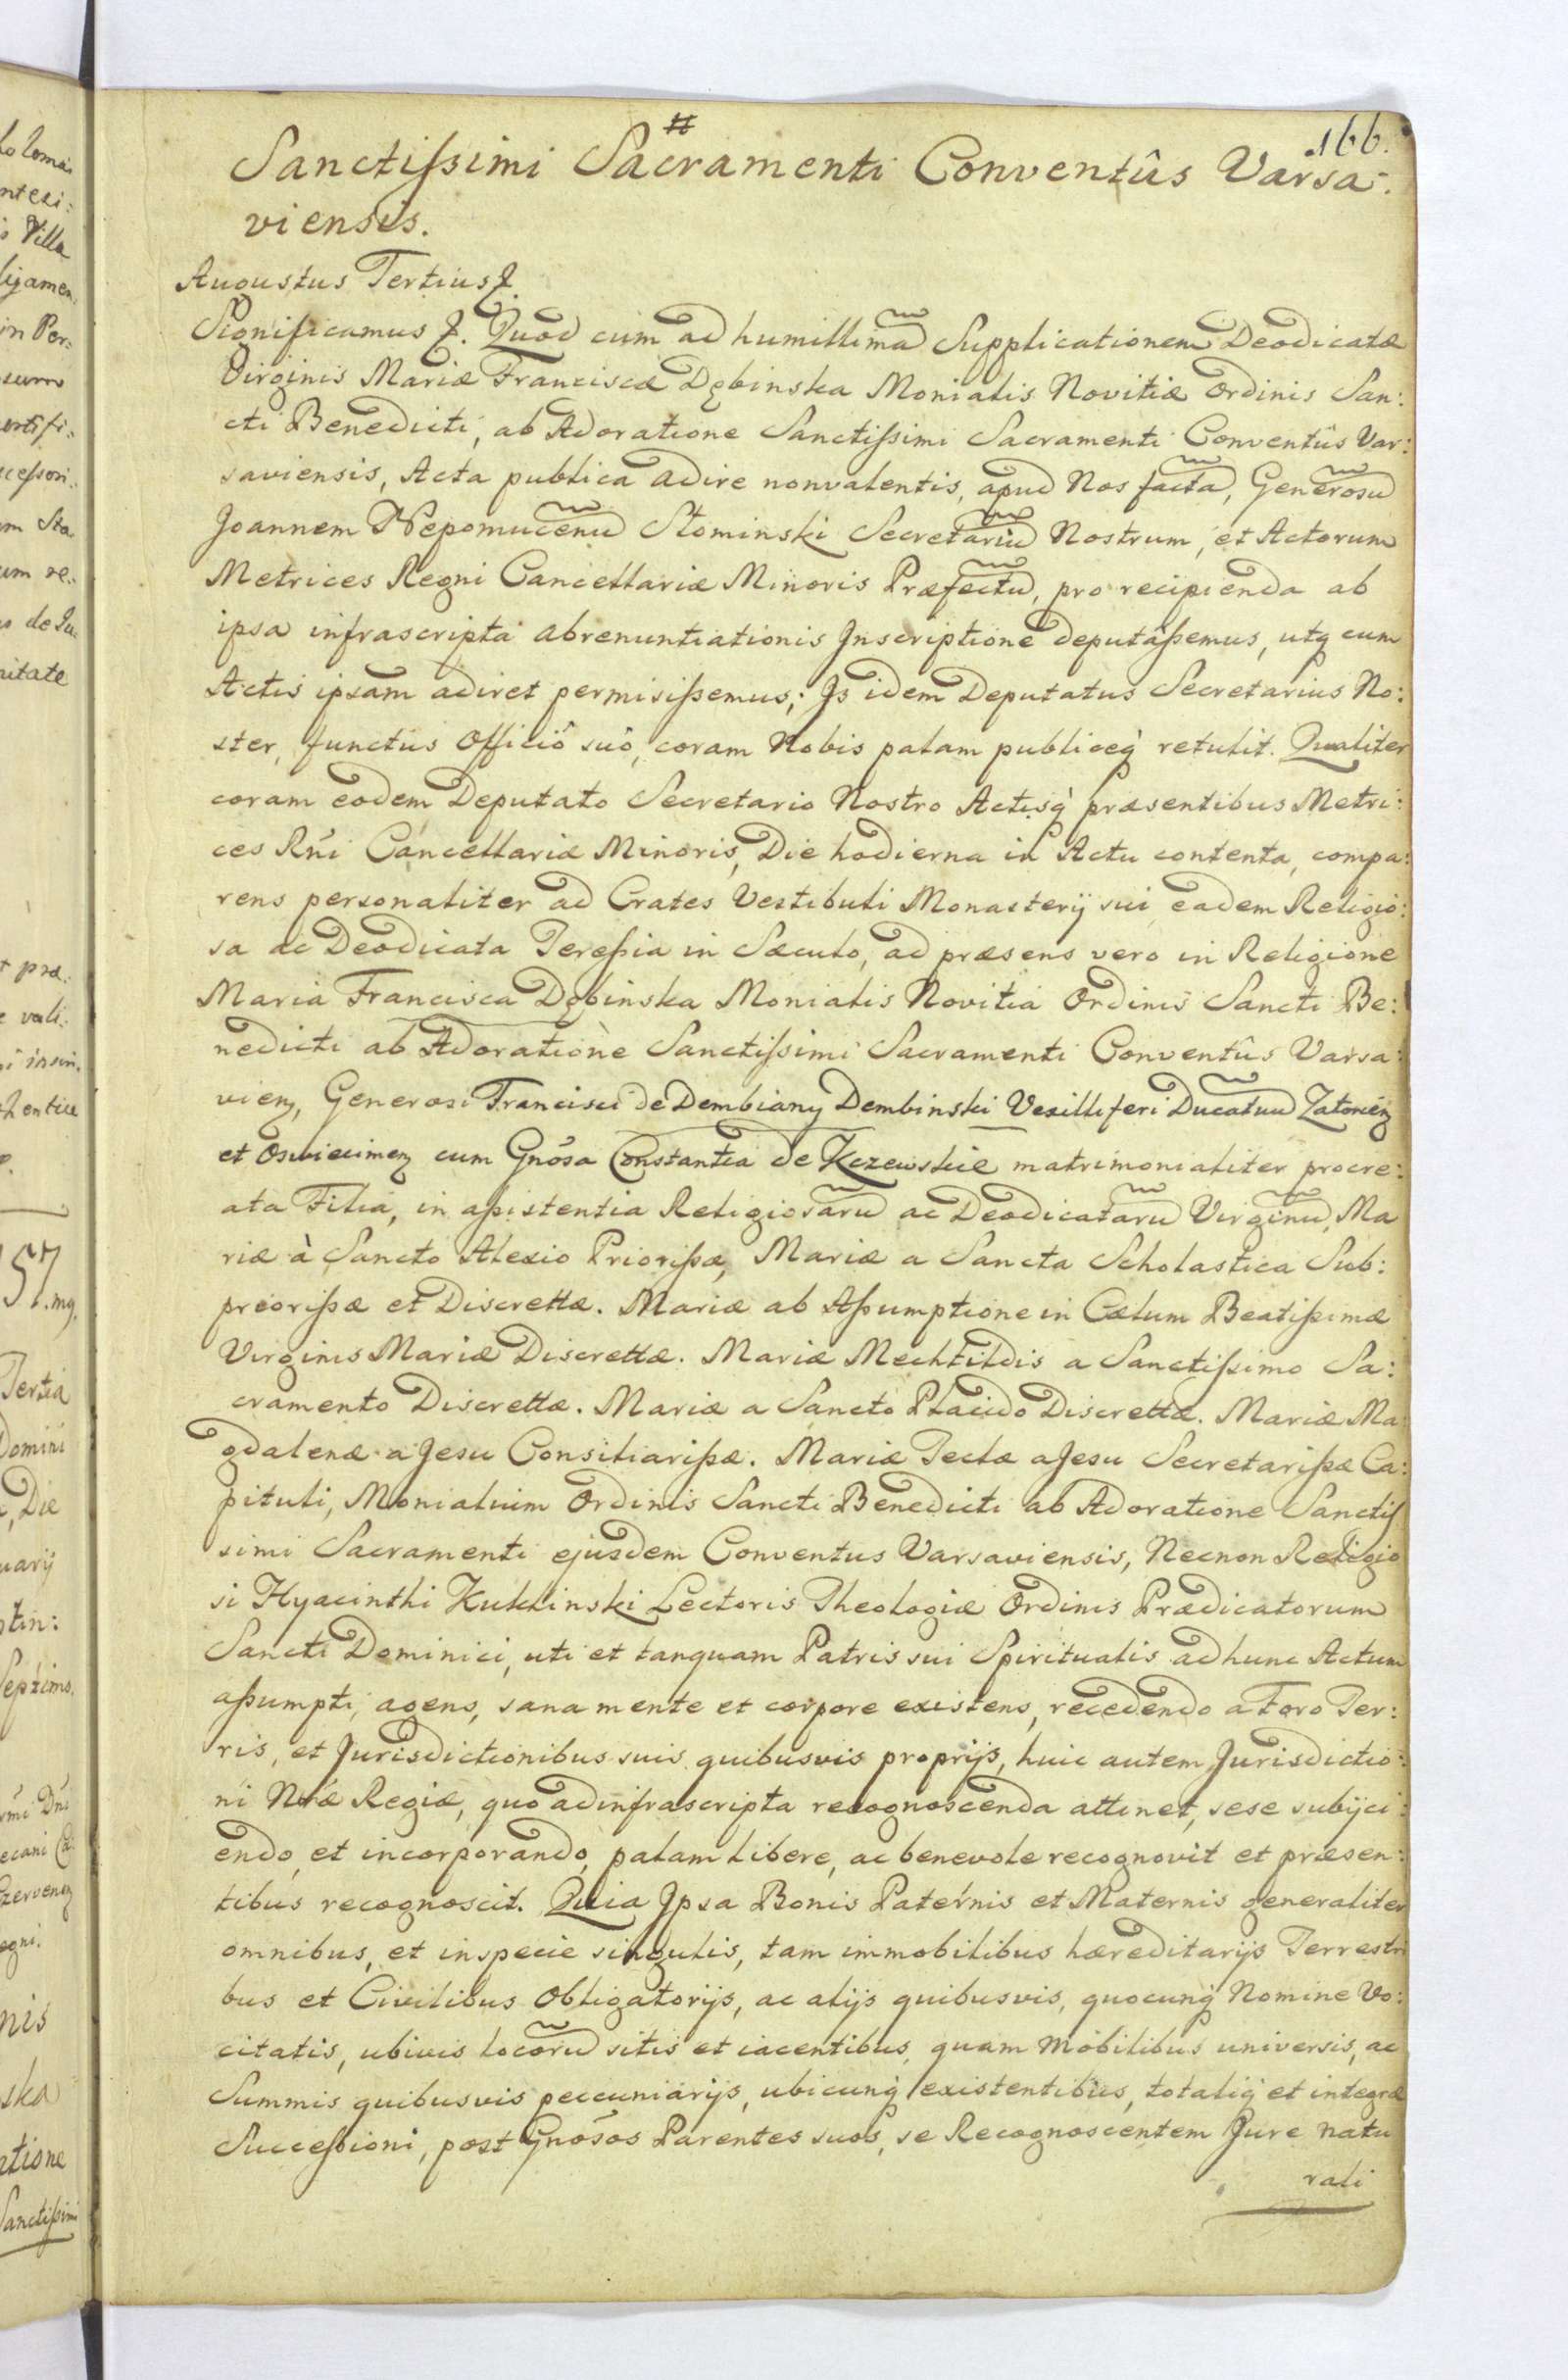 166.
#
Sanctissimi Sacramenti Conventûs Varsa:
viensis.
Augustus Tertius
Significamus Quod cum ad humillimã Supplicationem Deodicatæ
Virginis Mariæ Franciscæ Dębinska Monialis Novitiæ Ordinis San:
cti Benedicti, ab Adoratione Sanctissimi Sacramenti Conventûs Var:
saviensis, Acta publica adire nonvalentis, apud Nos factã, Generosũ
Joannem Nepomucenũ Słominski Secretariũ Nostrum, et Actorum
Metrices Regni Cancellariæ Minoris Præfectũ, pro recipienda ab
ipsa infrascripta abrenuntiationis Inscriptione deputâssemus, utq cum
Actis ipsam adiret permisissemus; Is idem Deputatus Secretarius No:
ster, functus Officiô suô, coram Nobis palam publiceq retulit. Qualiter
coram eodem Deputato Secretario Nostro Actisq præsentibus Metri:
ces Rñi Cancellariæ Minoris, Die hodierna in Actu contenta, compa:
rens personaliter ad Crates Vestibuli Monasterij sui eadem Religio:
sa ac Deodicata Teressia in Sæculo, ad præsens vero in Religione
Maria Francisca Dębinska Monialis Novitia Ordinis Sancti Be:
nedicti ab Adoratione Sanctissimi Sacramenti Conventûs Varsa:
vien, Generosi Francisci de Dembiany Dembinski Vexilliferi Ducatuũ Zatorien
et Oswiecimen cum Gnõsa Constantia de Kczewskie matrimonialiter procre:
ata Filia, in assistentia Religiosarũ ac Deodicatarũ Virginũ, Ma
riæ à Sancto Alexio Priorissæ, Mariæ a Sancta Scholastica Sub:
priorissæ et Discrettæ. Mariæ ab Assumptione in Cælum Beatissimæ
Virginis Mariæ Discrettæ. Mariæ Mechtildis a Sanctissimo Sa:
cramento Discrettæ. Mariæ a Sancto Placido Discrettæ. Mariæ Ma:
gdalenæ a Jesu Consiliarissæ. Mariæ Teclæ a Jesu Secretarissæ Ca:
pituli, Monialium Ordinis Sancti Benedicti ab Adoratione Sanctis
simi Sacramenti ejusdem Conventus Varsaviensis, Necnon Religio
si Hyacinthi Kuklinski Lectoris Theologiæ Ordinis Prædicatorum
Sancti Dominici, uti et tanquam Patris sui Spiritualis ad hunc Actum
assumpti, agens, sana mente et corpore existens, recedendo a Foro Ter:
ris, et Jurisdictionibus suis quibusvis proprijs, huic autem Jurisdictio:
ni Nræ Regiæ, quo ad infrascripta recognoscenda attinet, sese subijci:
endo, et incorporando, palam libere, ac benevole recognovit et præsen:
tibus recognoscit. Quia Ipsa Bonis Paternis et Maternis generaliter
omnibus, et inspecie singulis, tam immobilibus hæreditarijs Terrestri
bus et Civilibus Obligatorijs, ac alijs quibusvis, quocunq Nomine Vo:
citatis, ubivis locorũ sitis et iacentibus, quam mobilibus universis, ac
Summis quibusvis peccuniarijs, ubicunq existentibus, totaliq et integræ
Successioni, post Gnõsos Parentes suos, se Recognoscentem Jure natu
rali